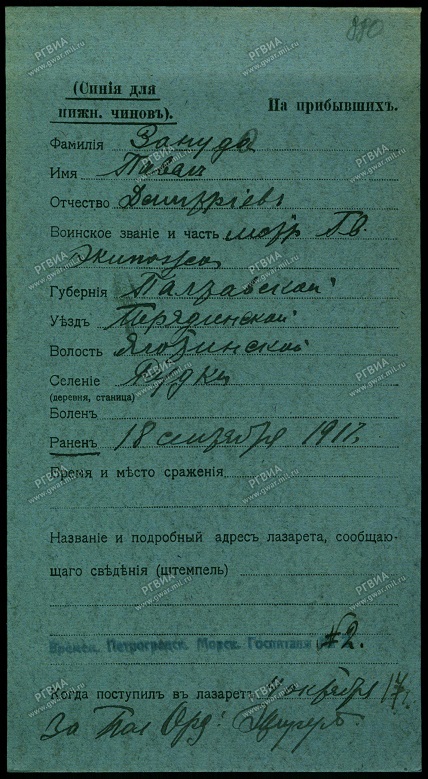 880
(Синія для
нижн. чиновъ).
На прибывшихъ.
Фамилія Зануда
Имя Павел
Отчество Дмитріевъ
Воинское званіе и часть матр Гв.
Экипажа
Губернія Полтавской
Уѣздъ
Волость
Селеніе Рудки
(деревня, станица)
Боленъ
Раненъ 18 сентября 1917.
Время и мѣсто сраженія
Названіе и подробный адресъ лазарета, сообщаю-
щаго свѣдѣнія (штемпель)
Времен. Петроградск. Морск. Госпиталя №2.
Когда поступилъ въ лазаретъ октября 17 г.
За Пол Орд:
РГВИА
www.gwar.mil.ru